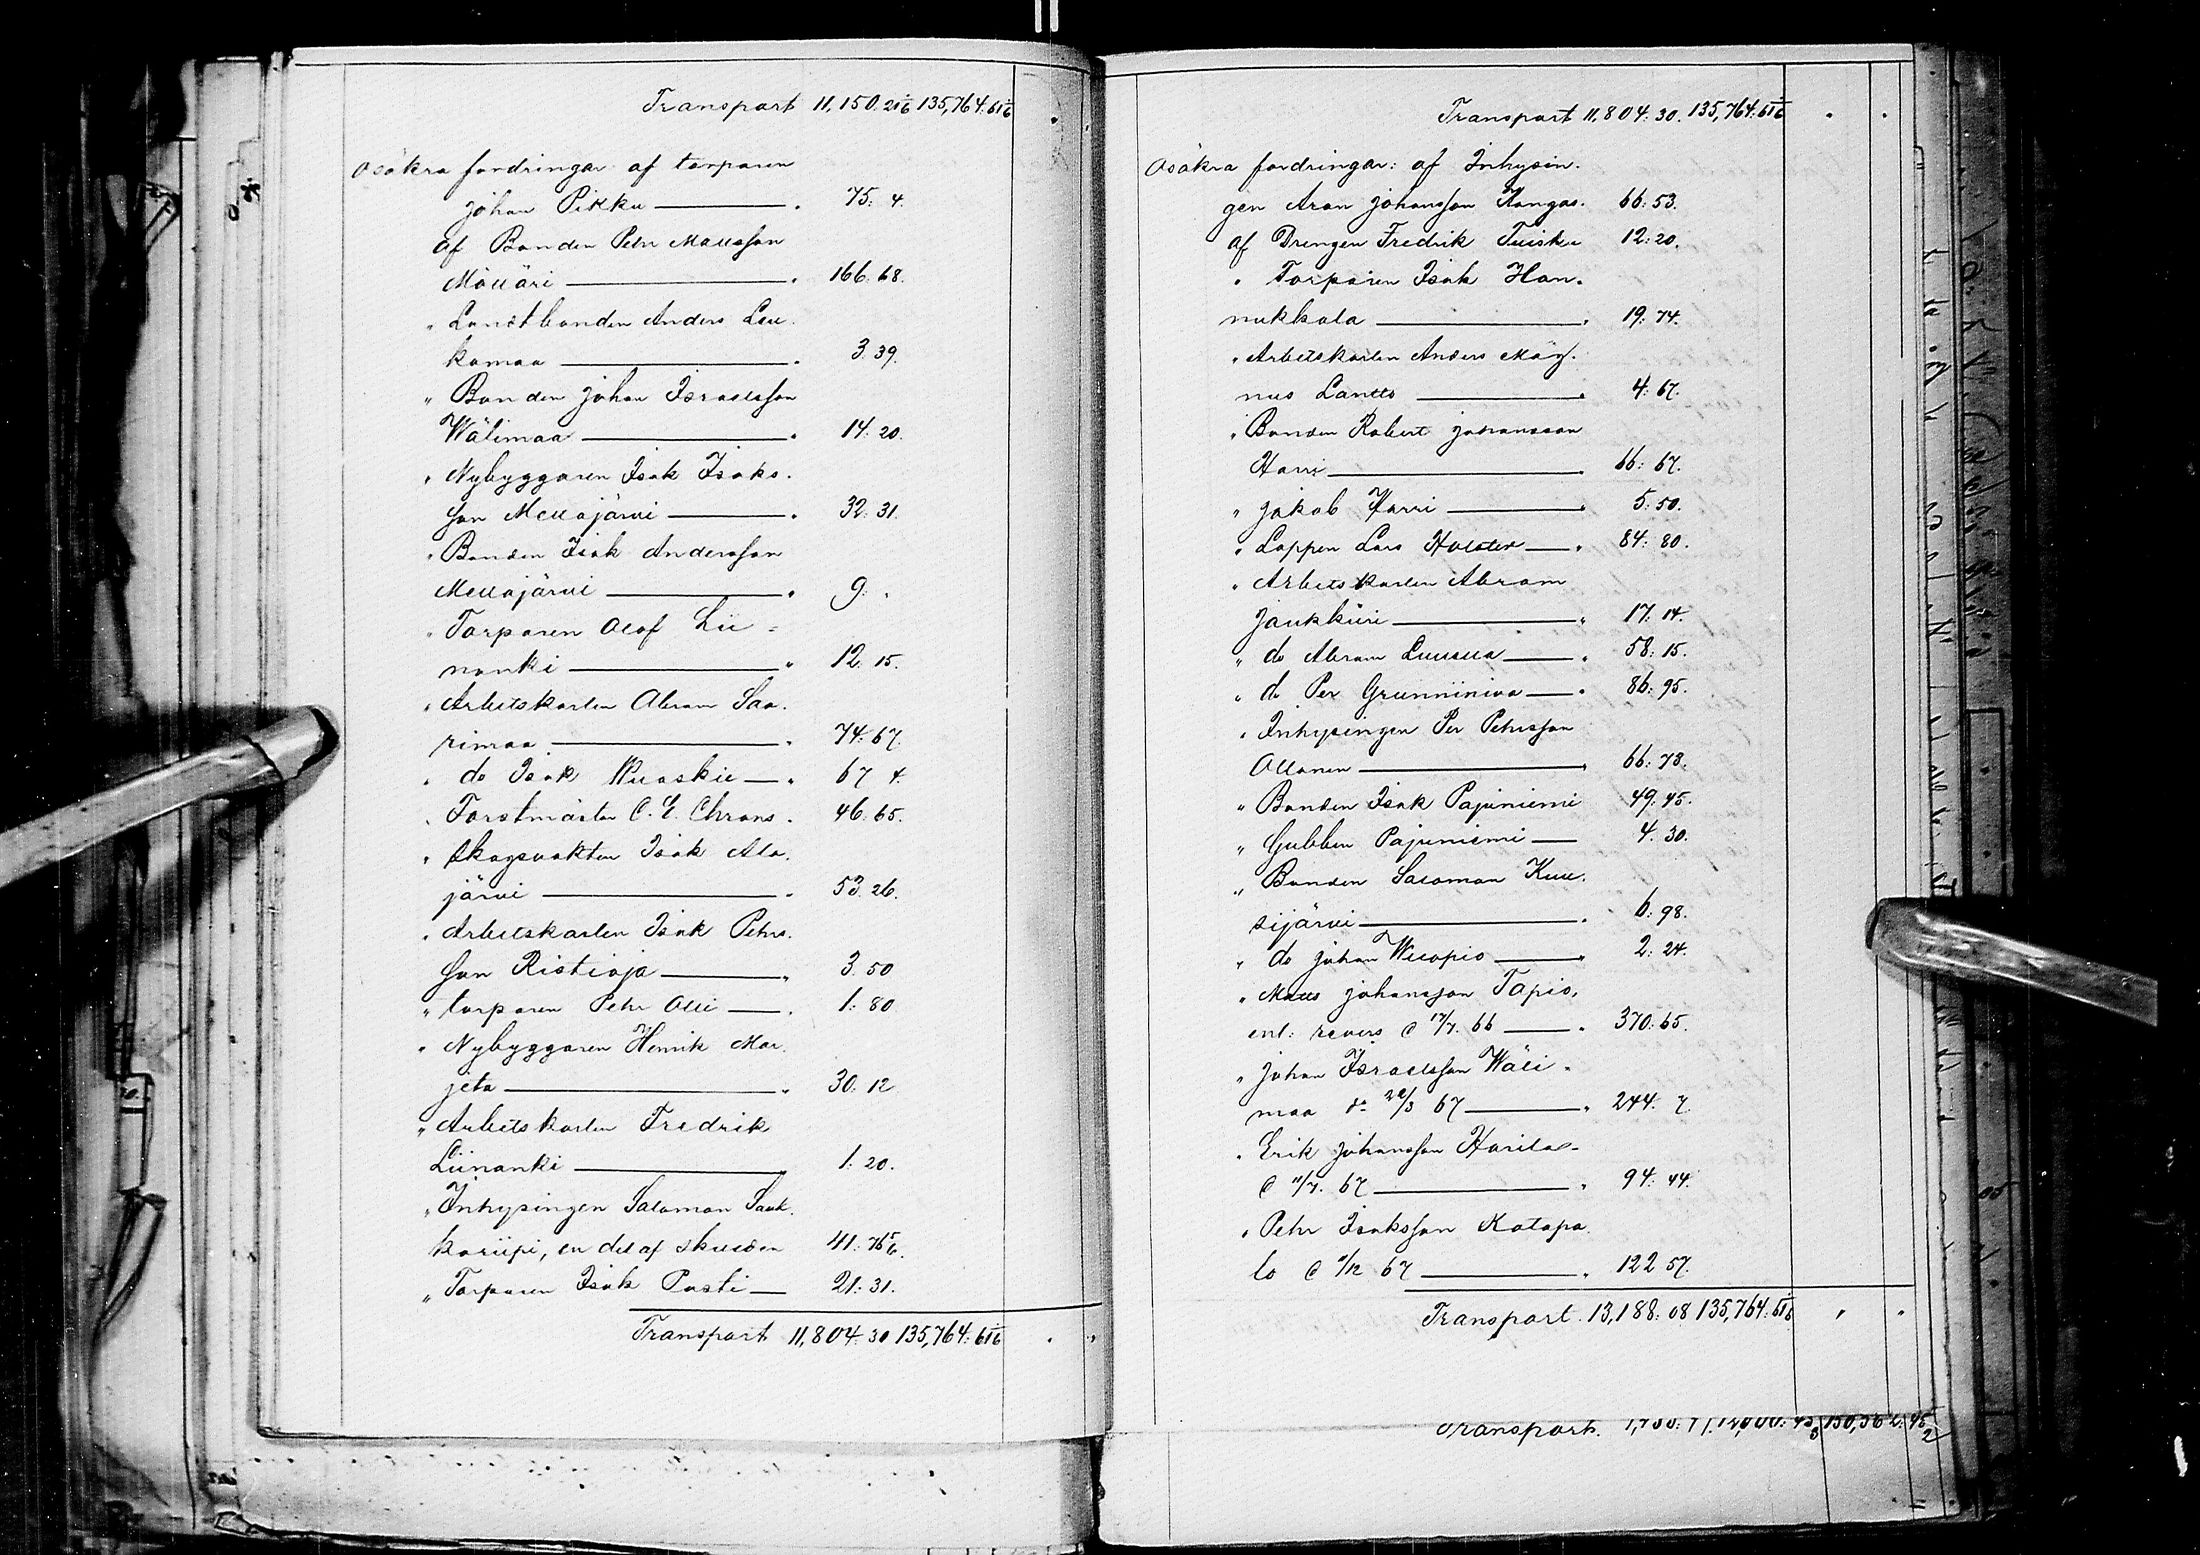 Transport 11,150. 21/6 135,764: 61/6
Osäkra fordringar af torparen
Johan Pikku — 75: 4.
af Bonden Petr Mattsson
Möttäri — 166. 68.
" Landtbonden Anders Lau.
kamaa — 3. 39.
" Bonden Johan Israelsson
Wälimaa — 14: 20.
" Nybyggaren Isak Isaks.
son Mellajärvi — 32: 31.
" Bonden Isak Andersson
Mellajärvi — 9: "
" Torparen Olof Lii =
nanki — 12: 15.
" Arbetskarlen Abram Saa.
rimaa — 74: 67.
" do Isak Wuaskie — 67 4.
" Forstmästar C. E. Chrons. 46: 65.
" Skogsvakten Isak Ala.
järvi — 53. 26.
" Arbetskarlen Isak Petrs.
son Ristioja — 3. 50
" torparen Petr Olli — 1: 80
" Nybyggaren Henrik Mar.
jeta — 30. 12
" Arbetskarlen Fredrik
Liinanki — 1: 20.
" Inhysingen Salomon Sauk.
koriipi, en del af skulden 41: 765/6.
" Torparen Isak Pasti — 21: 31.
Transport 11,804: 30 135,764: 61/6
Transport 11,804: 30. 135,764: 61/6
Osäkra fordringar: af Inhysin.
gen Aron Johansson Kangas. 66: 53.
af Drengen Fredrik Tuisku 12: 20.
" Torparen Isak Han.
nukkala — 19: 74.
" Arbetskarlen Anders Mag.
nus Lantto — 4: 67.
" Bonden Robert Johansson
Harri — 66: 67.
" Jakob Harri — 5: 50.
" Lappen Lars Holster — 84: 80.
" Arbetskarlen Abram
Jaukkuri — 17: 14.
" do Abram Luusua — 58: 15.
" do Per Grunniniva — 86: 95.
" Inhysingen Per Petersson
Ollonen — 66: 78.
" Bonden Isak Pajuniemi 49: 45.
" Gubben Pajuniemi — 4. 30.
" Bonden Salomon Kuu.
sijärvi — 6: 98.
" do Johan Wuopio — 2: 24.
" Matts Johansson Tapio,
enl: revers d 17/7. 66 — 370: 65.
" Johan Israelsson Wäli.
maa do 22/3 67 — 244. 7.
" Erik Johansson Harila
d 11/7. 67 — 94: 44.
" Petr Isaksson Katapa
lo d 1/12 67 — 122 57.
Transport. 13,188: 08 135,764: 61/6
Transport.